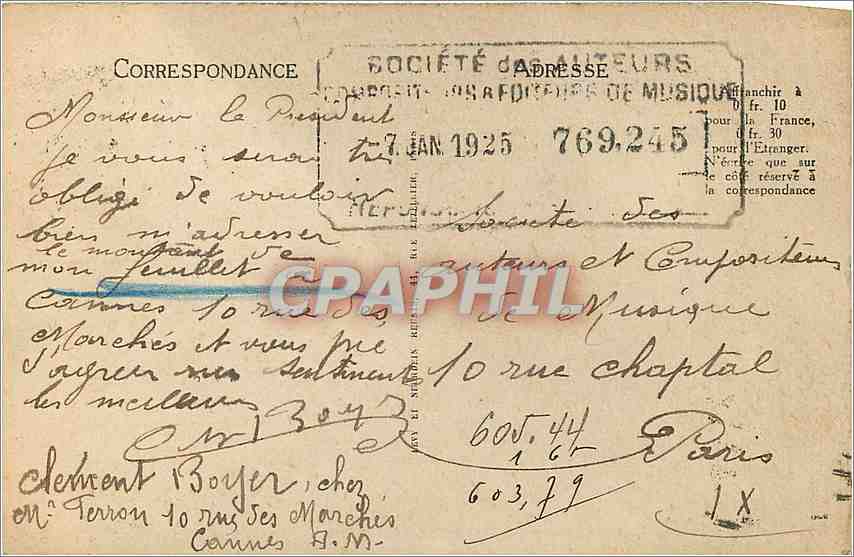 CORRESPONDANCE
Monsieur le President
je vous serai très
obligé de vouloir
bien m'adresser
le montant de
mon feuillet à
Cannes 10 rue des
Marchés et vous prie
d'agreer mes sentiments
les meilleurs
Boyer
Clement Boyer, chez
Mr Ferrou 10 rue des Marchés
Cannes A.M-
LEVY ET NEURDEIN REUNIS, 44, RUE LETELLIER, PARIS
ADRESSE
SOCIÉTÉ des AUTEURS
COMPOSITEURS & EDITEURS DE MUSIQUE
-7.JAN.1925 769.245
REPONSE
Affranchir à
0 fr. 10
pour la France,
0 fr. 30
pour l'Etranger.
N'écrire que sur
le côté réservé à
la correspondance
Societé des
auteurs et Compositeurs
de Musique
10 rue chaptal
Paris
605.44
1 65
603,79
1 X
CPAPHIL